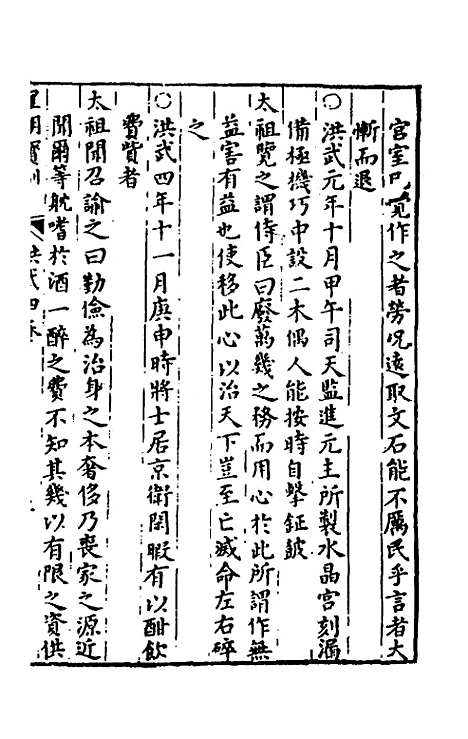 宮室已覺作之者勞況遠取文石能不厲民乎言者大
慚而退
○洪武元年十月甲午司天監進元主所製水晶宮刻漏
備極機巧中設二木偶人能按時自擊鉦皷
太祖覽之謂侍臣曰廢萬幾之務而用心於此所謂作無
益害有益也使移此心以治天下豈至亡滅命左右碎
之
○洪武四年十一月庚申時將士居京衛閑暇有以酣飲
費貲者
太祖聞召諭之曰勤儉為治身之本奢侈乃喪家之源近
聞爾等躭嗜於酒一醉之費不知其幾以有限之資供
皇明寶訓 洪武四卷